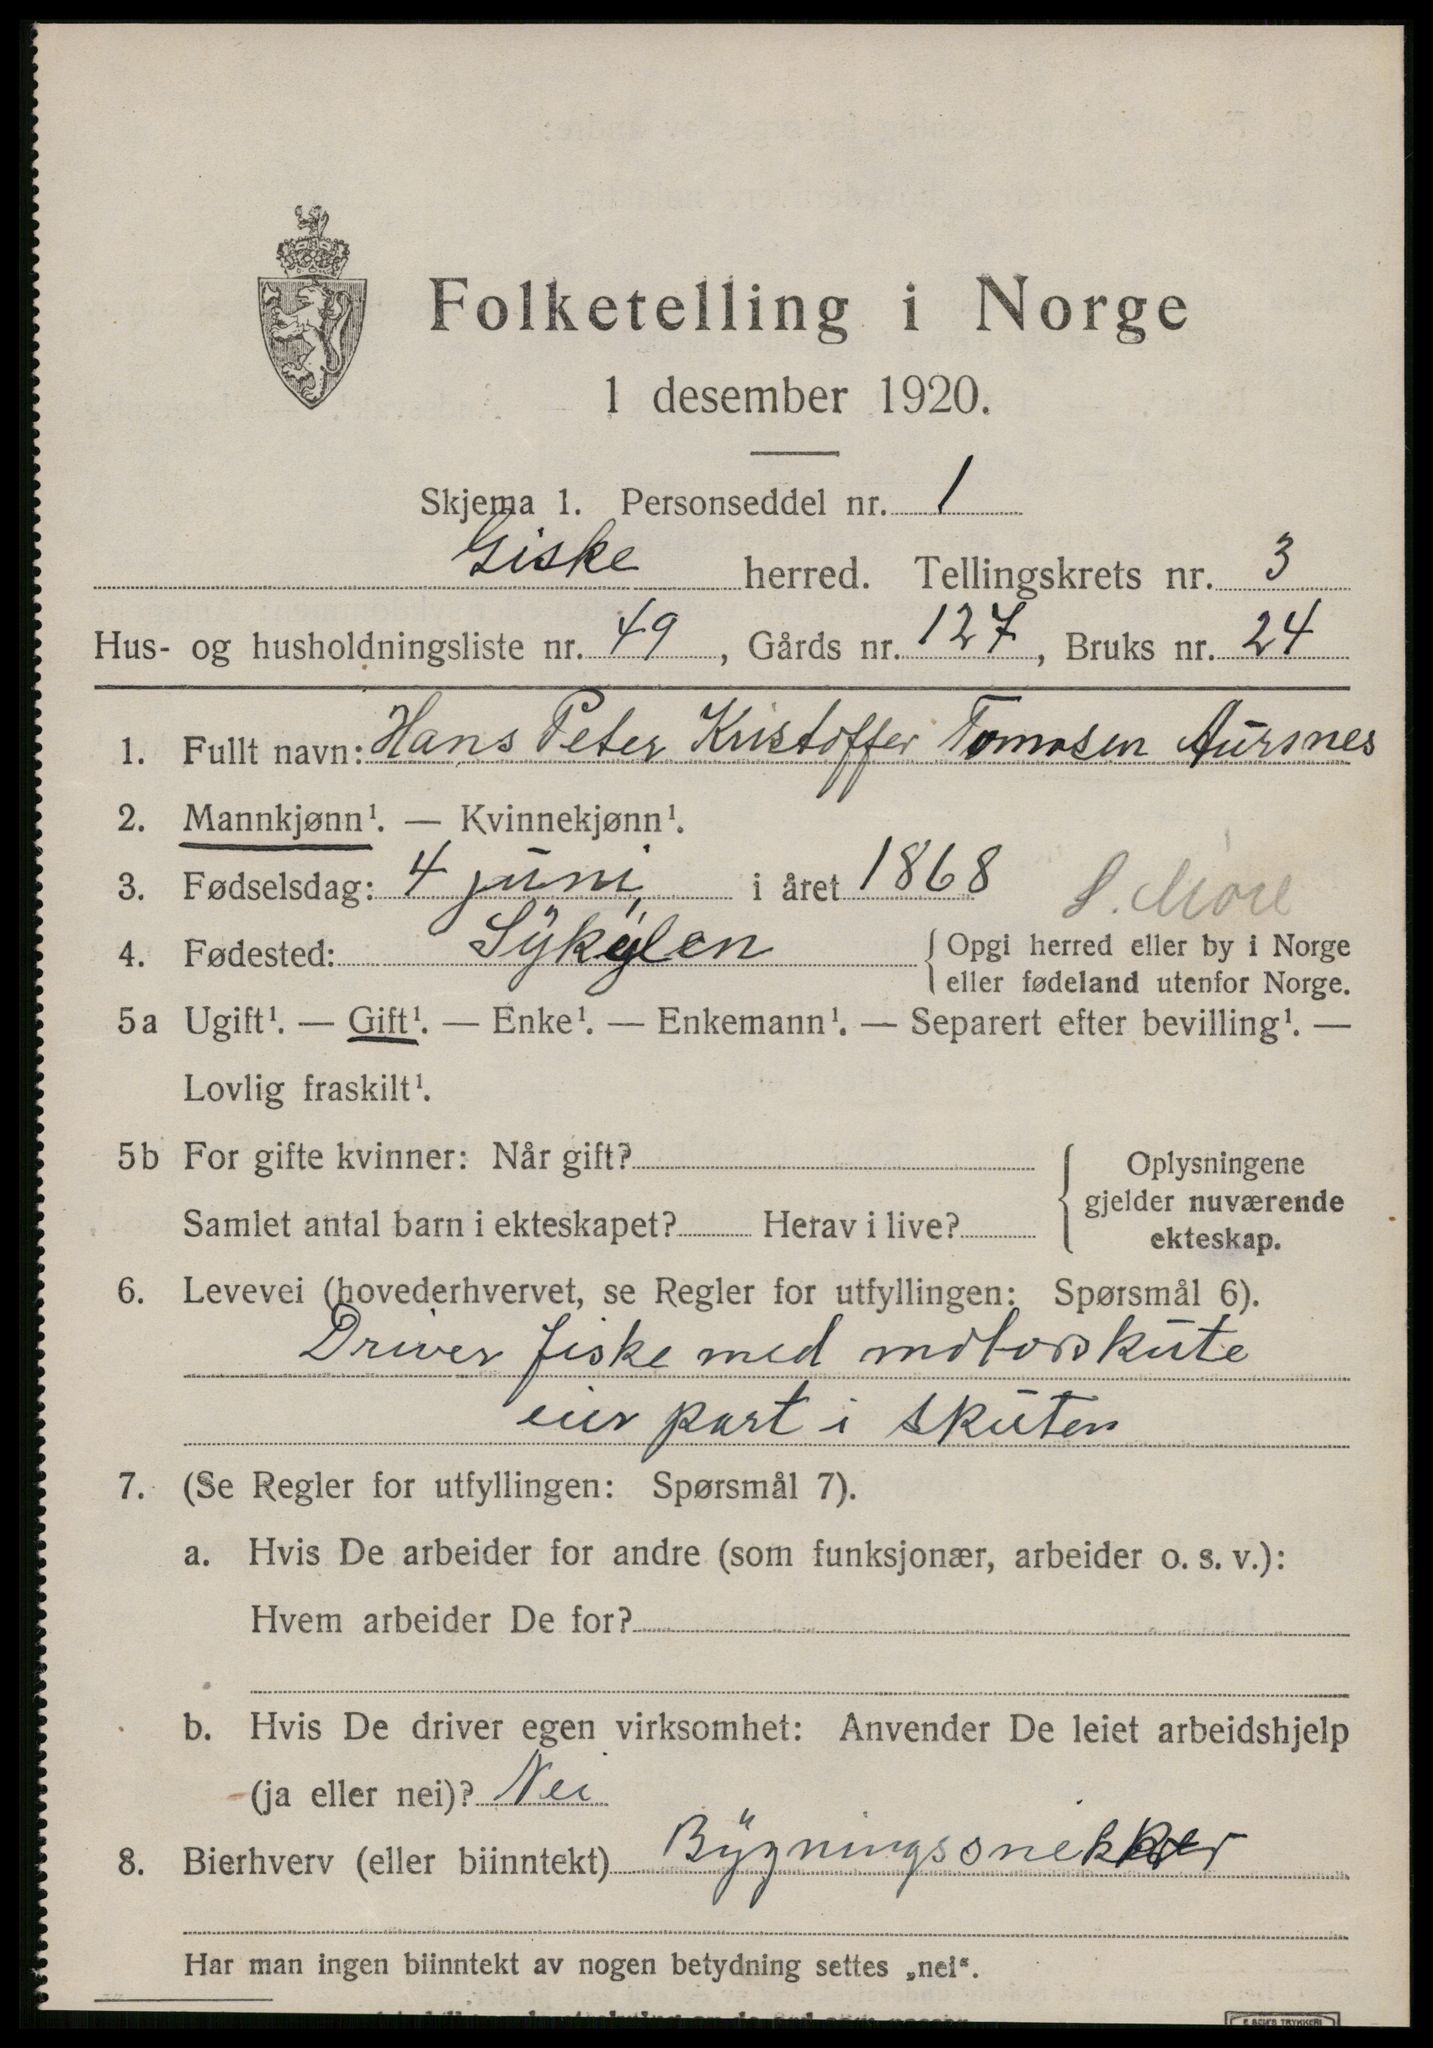 Folketelling i Norge
1 desember 1920.
Skjema 1. Personseddel nr. 1
Giske herred. Tellingskrets nr. 3
Hus- og husholdningsliste nr. 49, Gårds nr. 127, Bruks nr. 24
1. Fullt navn: Hans Peter Kristoffer Tomasen Aursnes
2. Mannkjønn¹. — Kvinnekjønn¹.
3. Fødselsdag: 4 juni, i året 1868 S. Møre
4. Fødested: Sykylen { Opgi herred eller by i Norge
eller fødeland utenfor Norge.
5a Ugift¹. — Gift¹. — Enke¹. — Enkemann¹. — Separert efter bevilling¹. —
Lovlig fraskilt¹.
5b For gifte kvinner: Når gift?
Samlet antal barn i ekteskapet? Herav i live?
Oplysningene
gjelder nuværende
ekteskap.
6. Levevei (hovederhvervet, se Regler for utfyllingen: Spørsmål 6).
Driver fiske med motorskute
eier part i skuten
7. (Se Regler for utfyllingen: Spørsmål 7).
a. Hvis De arbeider for andre (som funksjonær, arbeider o. s. v.):
Hvem arbeider De for?
b. Hvis De driver egen virksomhet: Anvender De leiet arbeidshjelp
(ja eller nei)? Nei
8. Bierhverv (eller biinntekt) Bygningssnekker
Har man ingen biinntekt av nogen betydning settes „nei“.